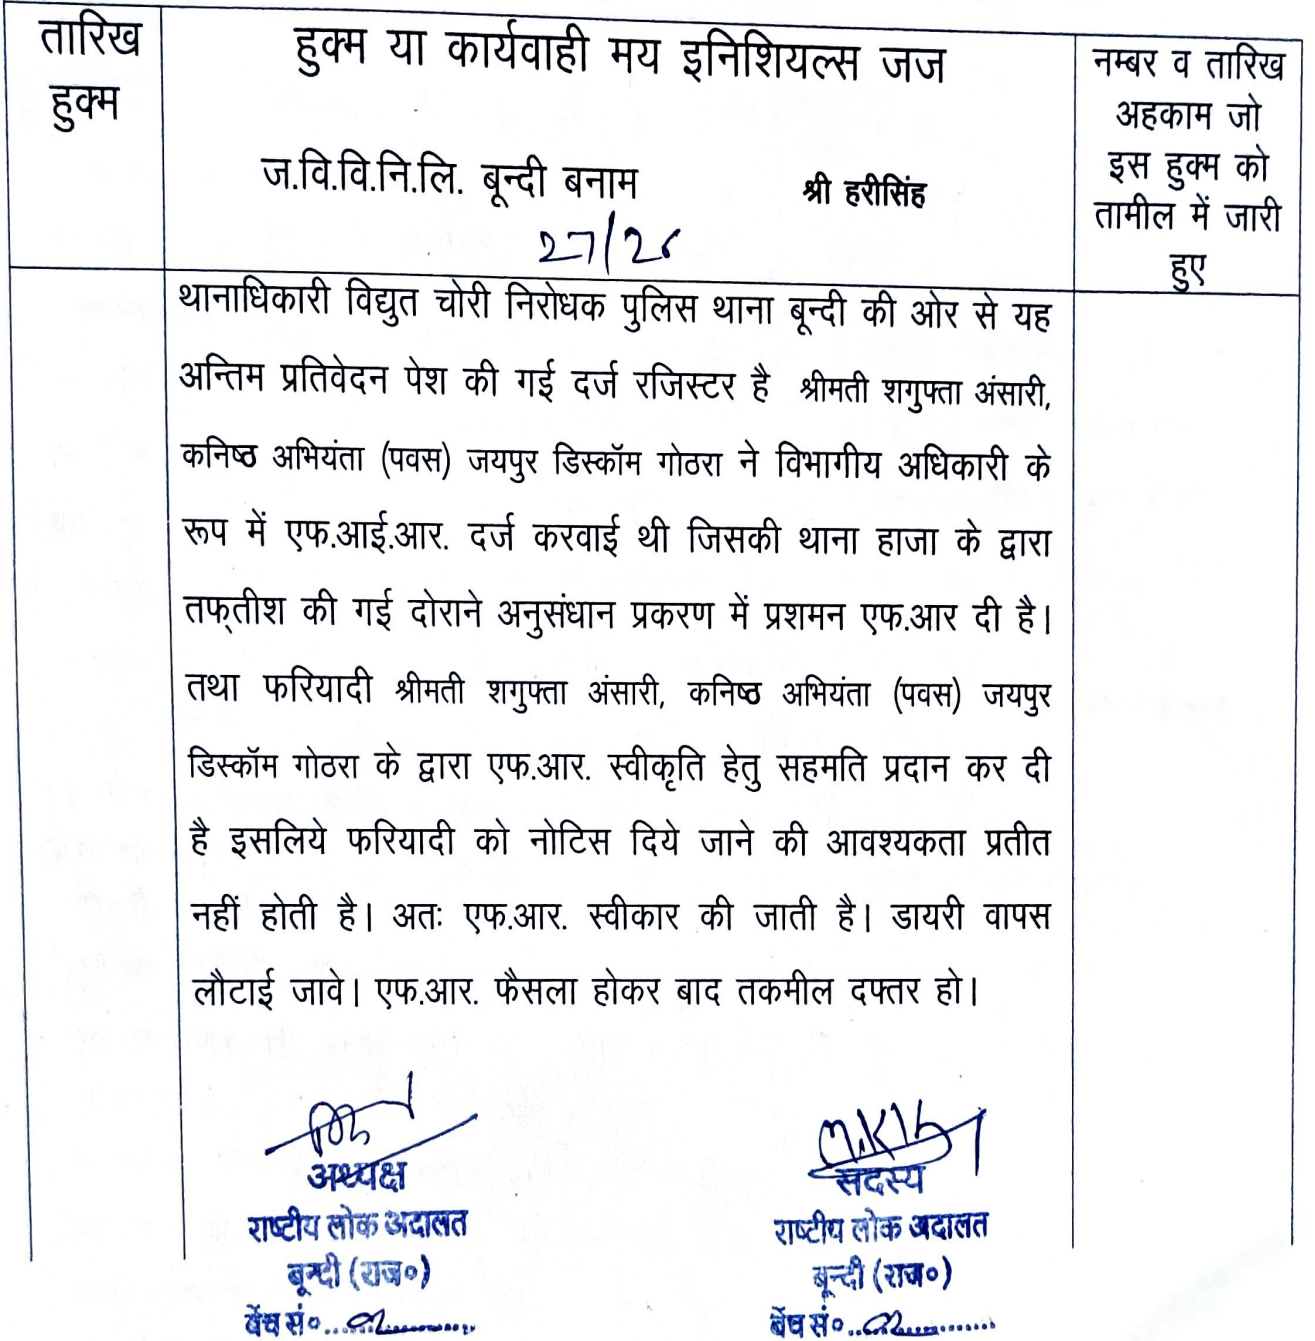 तारिख
हुक्म
हुक्म या कार्यवाही मय इनिशियल्स जज
ज.वि.वि.नि.लि. बून्दी बनाम श्री हरीसिंह
27/26
नम्बर व तारिख
अहकाम जो
इस हुक्म को
तामील में जारी
हुए
थानाधिकारी विद्युत चोरी निरोधक पुलिस थाना बून्दी की ओर से यह
अन्तिम प्रतिवेदन पेश की गई दर्ज रजिस्टर है श्रीमती शगुफ्ता अंसारी,
कनिष्ठ अभियंता (पवस) जयपुर डिस्कॉम गोठरा ने विभागीय अधिकारी के
रूप में एफ.आई.आर. दर्ज करवाई थी जिसकी थाना हाजा के द्वारा
तफ्तीश की गई दोराने अनुसंधान प्रकरण में प्रशमन एफ.आर दी है।
तथा फरियादी श्रीमती शगुफ्ता अंसारी, कनिष्ठ अभियंता (पवस) जयपुर
डिस्कॉम गोठरा के द्वारा एफ.आर. स्वीकृति हेतु सहमति प्रदान कर दी
है इसलिये फरियादी को नोटिस दिये जाने की आवश्यकता प्रतीत
नहीं होती है। अतः एफ.आर. स्वीकार की जाती है। डायरी वापस
लौटाई जावे। एफ.आर. फैसला होकर बाद तकमील दफ्तर हो।
अध्यक्ष
राष्टीय लोक अदालत
बून्दी (राज०)
बेंच सं०
सदस्य
राष्टीय लोक अदालत
बून्दी (राज०)
बेंच सं०